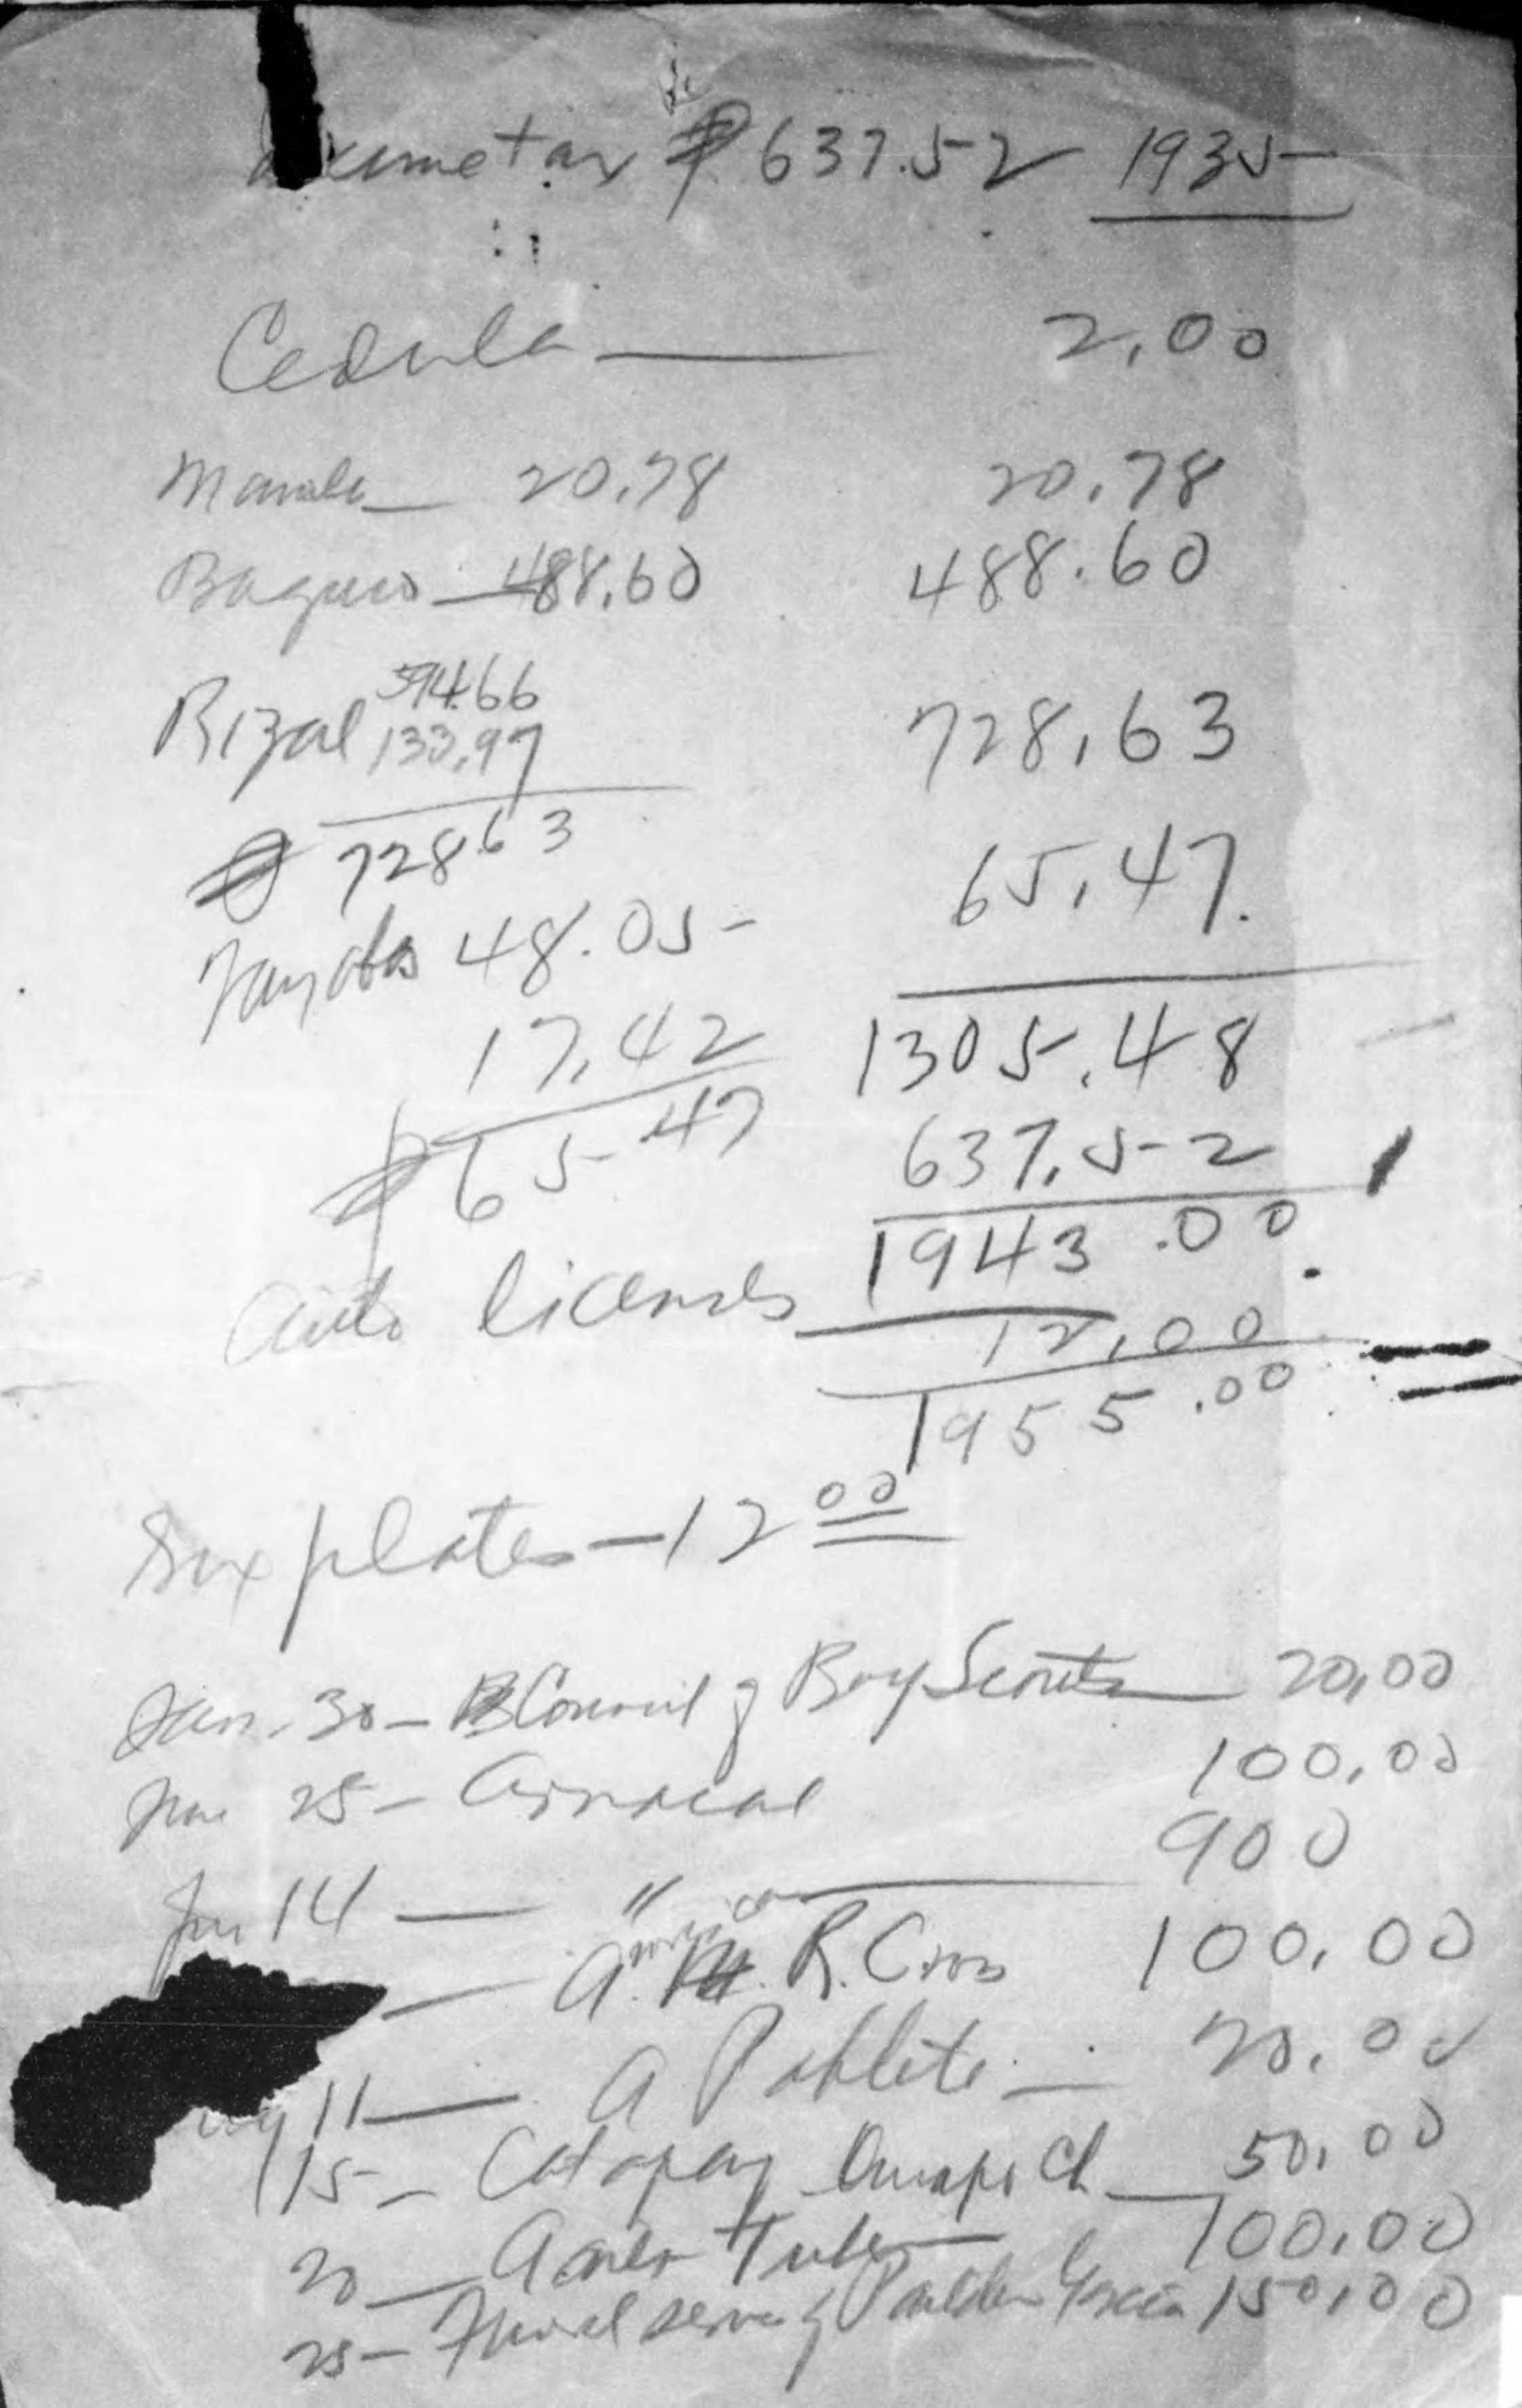 Income tax ₱ 637.52 1935
Cedula — 2.00
Manila — 20.78 20.78
Baguio — 488.60 488.60
594.66
Rizal 133.97 728.63
₱ 728.63
65.47
Tayabas 48.05
17.42 1305.48
₱ 65.47 637.52
1943.00
Auto licenses 12.00
1955.00
Six plates — 12 00
Jan. 30 — Council of Boy Scouts — 20.00
Jan 25 — Carnival 100.00
Jan 14 — " — 900
— American R. Cross 100.00
11 — A Poblete — 20.00
15 — Catapay Ch — 50.00
20 — Tube — 100.00
25 — of 150.00